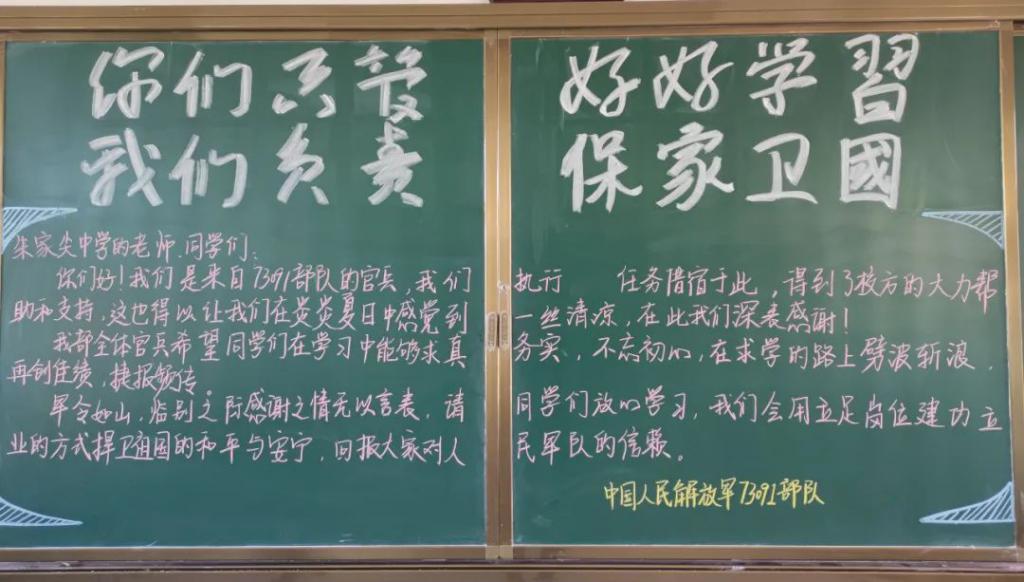 你们只管 好好学習
我们负责 保家卫國
朱家尖中学的老师、同学们：
你们好！我们是来自73091部队的官兵，我们执行 任务借宿于此，得到了校方的大力帮
助和支持，这也得以让我们在炎炎夏日中感觉到一丝清凉，在此我们深表感谢！
我部全体官兵希望同学们在学习中能够求真务实，不忘初心，在求学的路上劈波斩浪，
再创佳绩，捷报频传。
军令如山，临别之际感谢之情无以言表，请同学们放心学习，我们会用立足岗位建功立
业的方式捍卫祖国的和平与安宁，回报大家对人民军队的信赖。
中国人民解放军73091部队